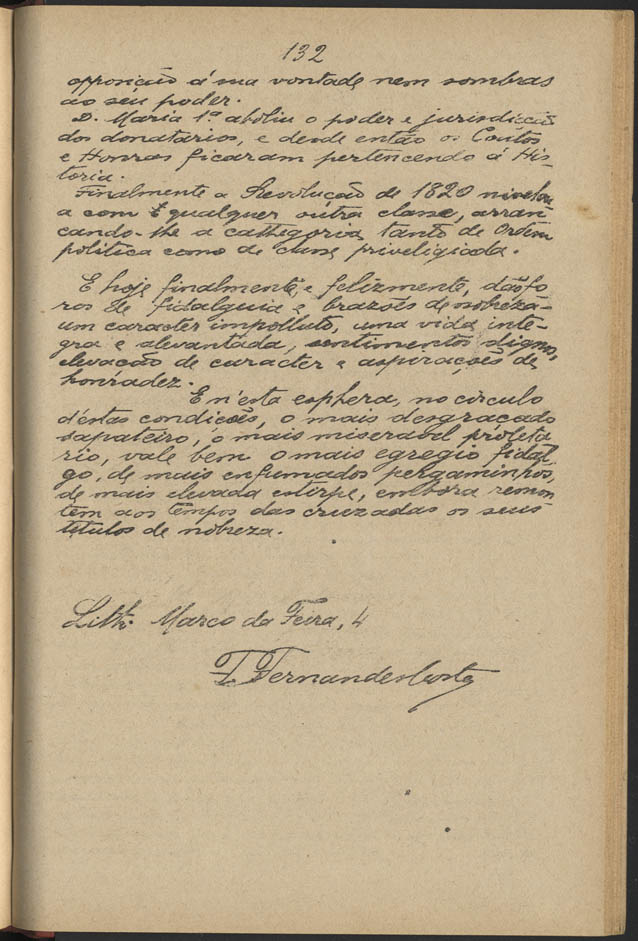 132
opposição á sua vontade nem sombras
ao seu poder.
D. Maria 1ª aboliu o poder e jurisdicção
dos donatarios, e desde então os Coutos
e Honras ficaram pertencendo á His-
toria.
Finalmente a Revolução de 1820 nivelou
a com qualquer outra classe, arran-
cando-lhe a cathegoria tanto de Ordem
politica como de classe priveligiada.
E hoje finalmente, e felizmente, dão fo
ros de fidalguia e brazões de nobreza-
um caracter impolluto, uma vida inte-
gra e alevantada, sentimentos dignos,
elevação de caracter e aspirações de
honradez.
E n'esta esphera, no circulo
d'estas condições, o mais desgraçado
sapateiro, o mais miseravel proleta
rio, vale bem o mais egregio fidal-
go, de mais enfumados pergaminhos,
de mais elevada estirpe, embora remon
tem aos tempos das cruzadas os seus
titulos de nobreza.
Lith. Marco da Feira, 4
T. Fernandes Costa